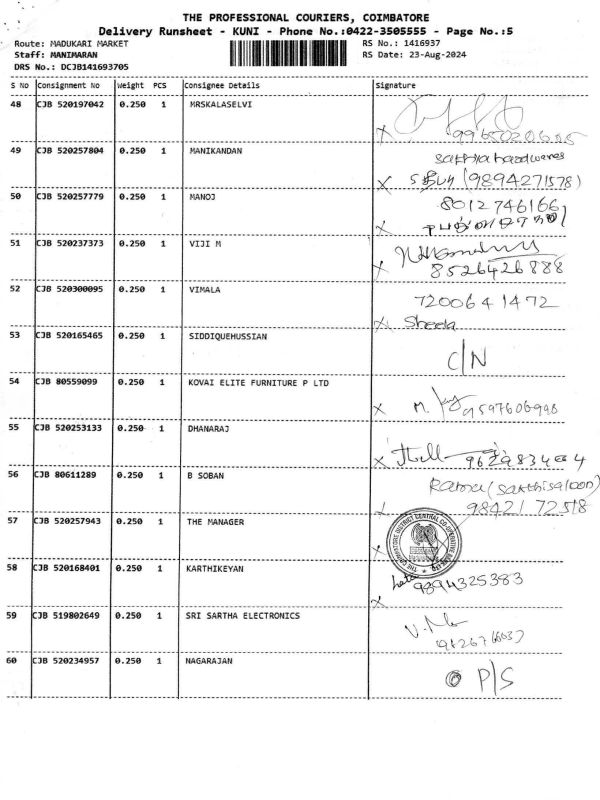 THE PROFESSIONAL COURIERS, COIMBATORE
Delivery Runsheet - KUNI - Phone No.:0422-3505555 - Page No.:5
Route: MADUKARI MARKET RS No.: 1416937
Staff: MANIMARAN RS Date: 23-Aug-2024
DRS No.: DCJB141693705
S No Consignment No Weight PCS Consignee Details Signature
48 CJB 520197042 0.250 1 MRSKALASELVI
X
49 CJB 520257804 0.250 1 MANIKANDAN
sakthi hardwares
X (9894271578)
50 CJB 520257779 0.250 1 MANOJ
8012746166
X
51 CJB 520237373 0.250 1 VIJI M
X 8526426888
52 CJB 520300095 0.250 1 VIMALA
7200641472
X Sheela
53 CJB 520165465 0.250 1 SIDDIQUEHUSSIAN
C/N
54 CJB 80559099 0.250 1 KOVAI ELITE FURNITURE P LTD
X M. 9597606998
55 CJB 520253133 0.250 1 DHANARAJ
X
56 CJB 80611289 0.250 1 B SOBAN
Rama (sakthisaloon)
X 98421 72518
57 CJB 520257943 0.250 1 THE MANAGER
X
THE COIMBATORE DISTRICT CENTRAL CO-OPERATIVE BANK LTD
58 CJB 520168401 0.250 1 KARTHIKEYAN
9894325383
X
59 CJB 519802649 0.250 1 SRI SARTHA ELECTRONICS
60 CJB 520234957 0.250 1 NAGARAJAN
P/S